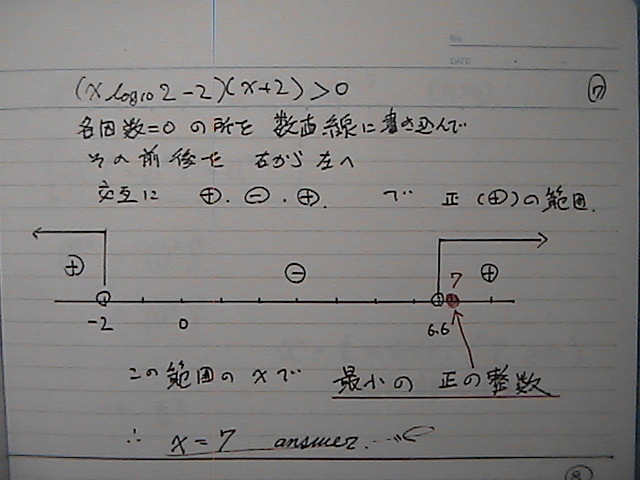 No.
DATE
(x log10 2-2)(x+2)>0 ⑦
各因数=0 の所を 数直線に書き込んで
その前後を 右から左へ
交互に ⊕. ⊖. ⊕. で 正(⊕)の範囲.
⊕ ⊖ 7 ⊕
-2 0 6.6
この範囲の xで 最小の 正の整数
∴ x=7 answer.
⑧